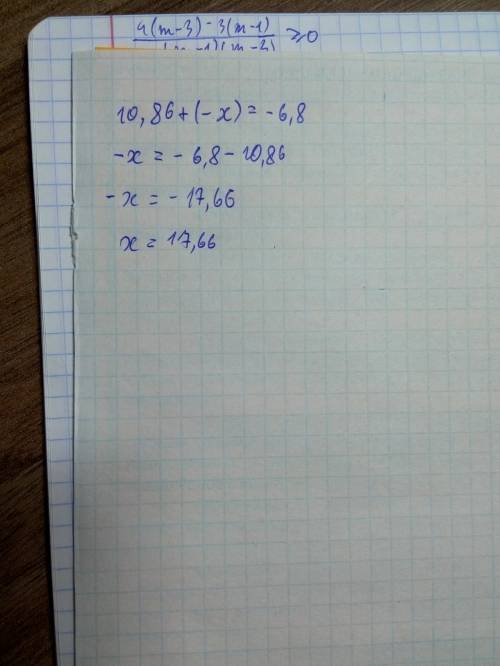 4(m-3)-3(m-1)
(m-1)(m-3) ≥0
10,86+(-x)=-6,8
-x=-6,8-10,86
-x=-17,66
x=17,66